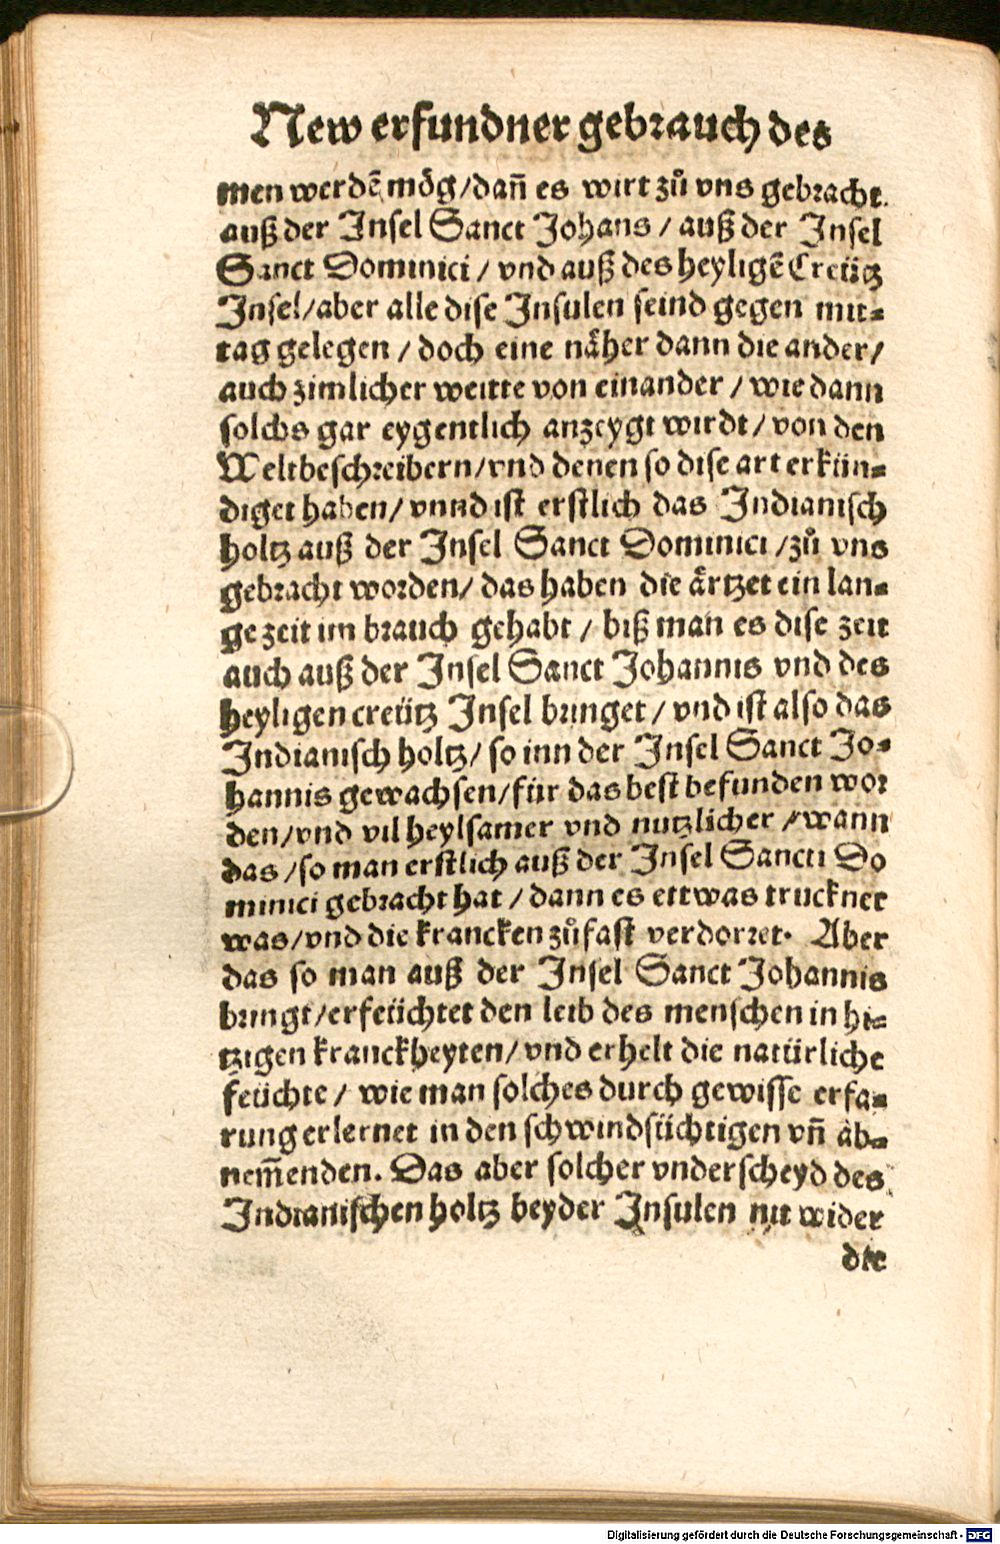 New erfundner gebrauch des
men werdẽ mög/dañ es wirt zů vns gebracht.
auß der Insel Sanct Johans / auß der Insel
Sanct Dominici / vnd auß des heyligẽ Creütz
Insel/aber alle dise Insulen seind gegen mit-
tag gelegen / doch eine näher dann die ander/
auch zimlicher weitte von einander / wie dann
solchs gar eygentlich anzeygt wirdt / von den
Weltbeschreibern/vnd denen so dise art erkün-
diget haben/ vnnd ist erstlich das Indianisch
holtz auß der Insel Sanct Dominici /zů vns
gebracht worden/ das haben die ärtzet ein lan-
ge zeit im brauch gehabt / biß man es dise zeit
auch auß der Insel Sanct Johannis vnd des
heyligen creütz Insel bringet / vnd ist also das
Indianisch holtz/ so inn der Insel Sanct Jo-
hannis gewachsen/für das best befunden wor
den/vnd vil heylsamer vnd nutzlicher / wann
das /so man erstlich auß der Insel Sancti Do
minici gebracht hat / dann es ettwas truckner
was/vnd die krancken zůfast verdorret. Aber
das so man auß der Insel Sanct Johannis
bringt/erfeüchtet den leib des menschen in hi-
tzigen kranckheyten/ vnd erhelt die natürliche
feüchte / wie man solches durch gewisse erfa-
rung erlernet in den schwindsüchtigen vñ äb-
nem̃enden. Das aber solcher vnderscheyd des
Indianischen holtz beyder Insulen nit wider
die
Digitalisierung gefördert durch die Deutsche Forschungsgemeinschaft - DFG